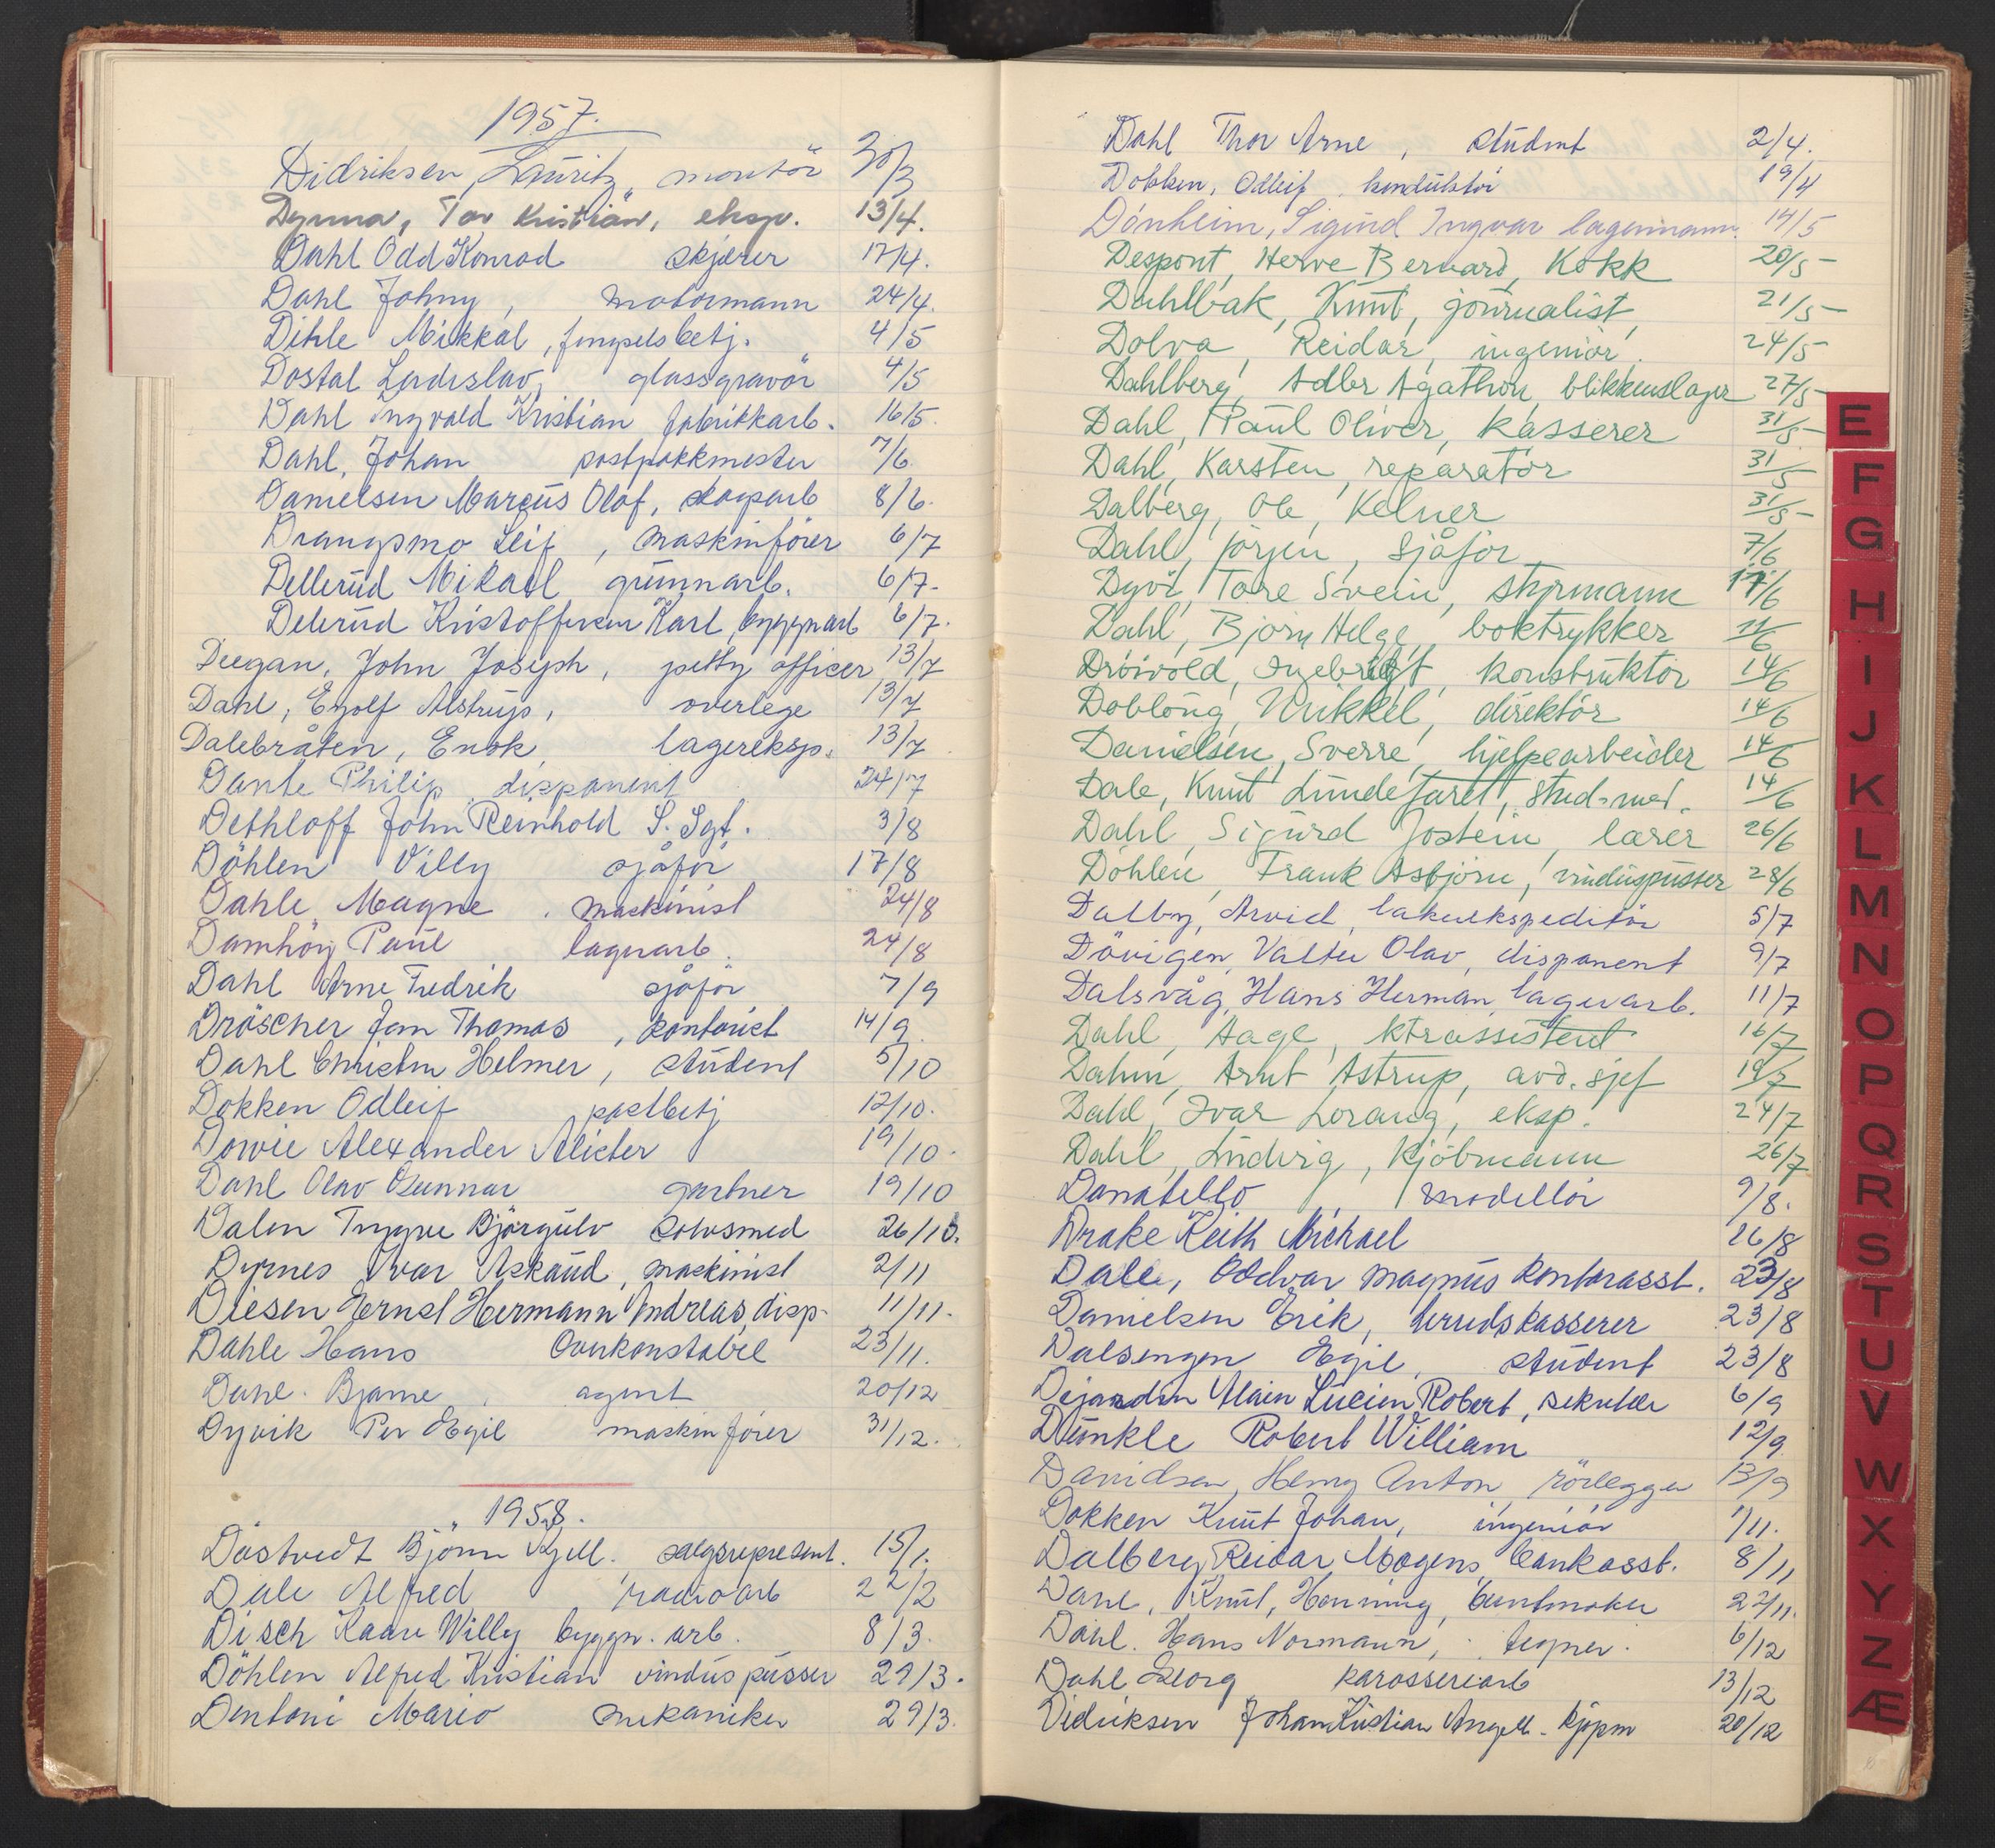 1957.
Didriksen, Lauritz, montör 30/3
Dynna, Tor Kristian, eksp. 13/4.
Dahl Odd Konrad skjærer 17/4.
Dahl Johny, motormann 24/4.
Dihle Mikkal, fengselsbetj. 4/5
Dostal Ladislav, glassgravör 4/5
Dahl Ingvald Kristian fabrikkarb. 16/5.
Dahl, Johan postpakkmester 7/6
Danielsen Marcus Olaf, skogarb 8/6.
Drangsmo Leif, maskinförer 6/7
Dellerud Mikael grunnarb. 6/7.
Delerud Kristoffersen Karl, byggnarb 6/7.
Deegan, John Joseph, petty officer 13/7
Dahl, Egolf Alstrup, overlege 13/7
Dalebråten, Enok, lagereksp. 13/7
Dante Philip, disponent 24/7
Dethloff John Reinhold S. Sgt. 3/8
Döhlen Villy sjåför 17/8
Dahle Magne, maskinist 24/8
Damhög Paul lagerarb. 24/8
Dahl Arne Fredrik sjåför 7/9
Dröscher Jan Thomas, kontorist 14/9
Dahl Christen Helmer, student 5/10
Dokken Odleif postbetj 12/10.
Dowie Alexander Alicter 19/10.
Dahl Olav Gunnar gartner 19/10
Dalen Trygve Björgulv 26/10.
Dyrnes Ivar Askaud, maskinist 2/11
Diesen Ernst Hermann Andreas, disp. 11/11.
Dahle Hans Overkonstabel 23/11.
Dahl. Bjarne, agent 20/12
Dyvik Per Egil maskinförer 31/12.
1958.
Dåstvedt Björn Kjell. salgsrepresent. 15/1.
Dale Alfred radioarb 22/2
Disch Kaare Willy byggn. arb. 8/3.
Döhlen Alfred Kristian vinduspusser 29/3.
Dentoni Mario mekaniker 29/3.
Dahl Thor Arne, student 2/4.
Dokken, Odleif, konduktör 19/4
Dönheim, Sigurd Ingvar lagermann. 14/5
Despont, Herve Bernard, Kokk 20/5
Dahlbak, Knut, journalist, 21/5
Dolva, Reidar, ingeniör. 24/5
Dahlberg, Adler Agathon, blikkenslager 27/5
Dahl, Paul Oliver, kasserer 31/5
Dahl, Karsten, reparatör 31/5
Dalberg, Ole, Kelner 31/5
Dahl, Jörgen, sjåför 7/6
Dyvi, Tore Svein, styrmann 11/6
Dahl, Björn Helge, boktrykker 11/6
Dröivold, Ingebrigt, konstruktör 14/6
Dobloug, Mikkel, direktör 14/6
Danielsen, Sverre, hjelpearbeider 14/6
Dale, Knut Lundefaret, stud. med. 14/6
Dahl, Sigurd Jostein, lærer 26/6
Döhlen, Frank Asbjörn, vinduspusser 28/6
Dalby, Arvid, lakerekspeditör 5/7
Dövigen, Valter Olav, disponent 9/7
Dalsvåg, Hans Herman, lagerarb. 11/7
Dahl, Aage, ktrassistent 16/7
Dahm, Arnt Astrup, avd. sjef 19/7
Dahl, Ivar Lorang, eksp. 24/7
Dahl, Ludvig, Kjöbmann 26/7
Donatello, modellör 9/8.
Drake Keith Michael 16/8
Dale, Oddvar Magnus kontorasst. 23/8
Danielsen Erik, herredskasserer 23/8
Dalsengen Egil, student 23/8
Dejardin Alain Lucien Robert, sekretær 6/9
Dunkle Robert William 12/9
Davidsen, Henry Anton, rörlegger 13/9
Dokken Knut Johan, ingeniör 1/11.
Dalberg Reidar Mogens, bankasst. 8/11
Dahl, Knut, Henning, buntmaker 22/11.
Dahl. Hans Normann, tegner. 6/12
Dahl Georg karosseriarb 13/12
Didriksen Johan Kristian Angell. kjöpm 20/12
E
F
G
H
I
J
K
L
M
N
O
P
Q
R
S
T
U
V
W
X
Y
Z
Æ